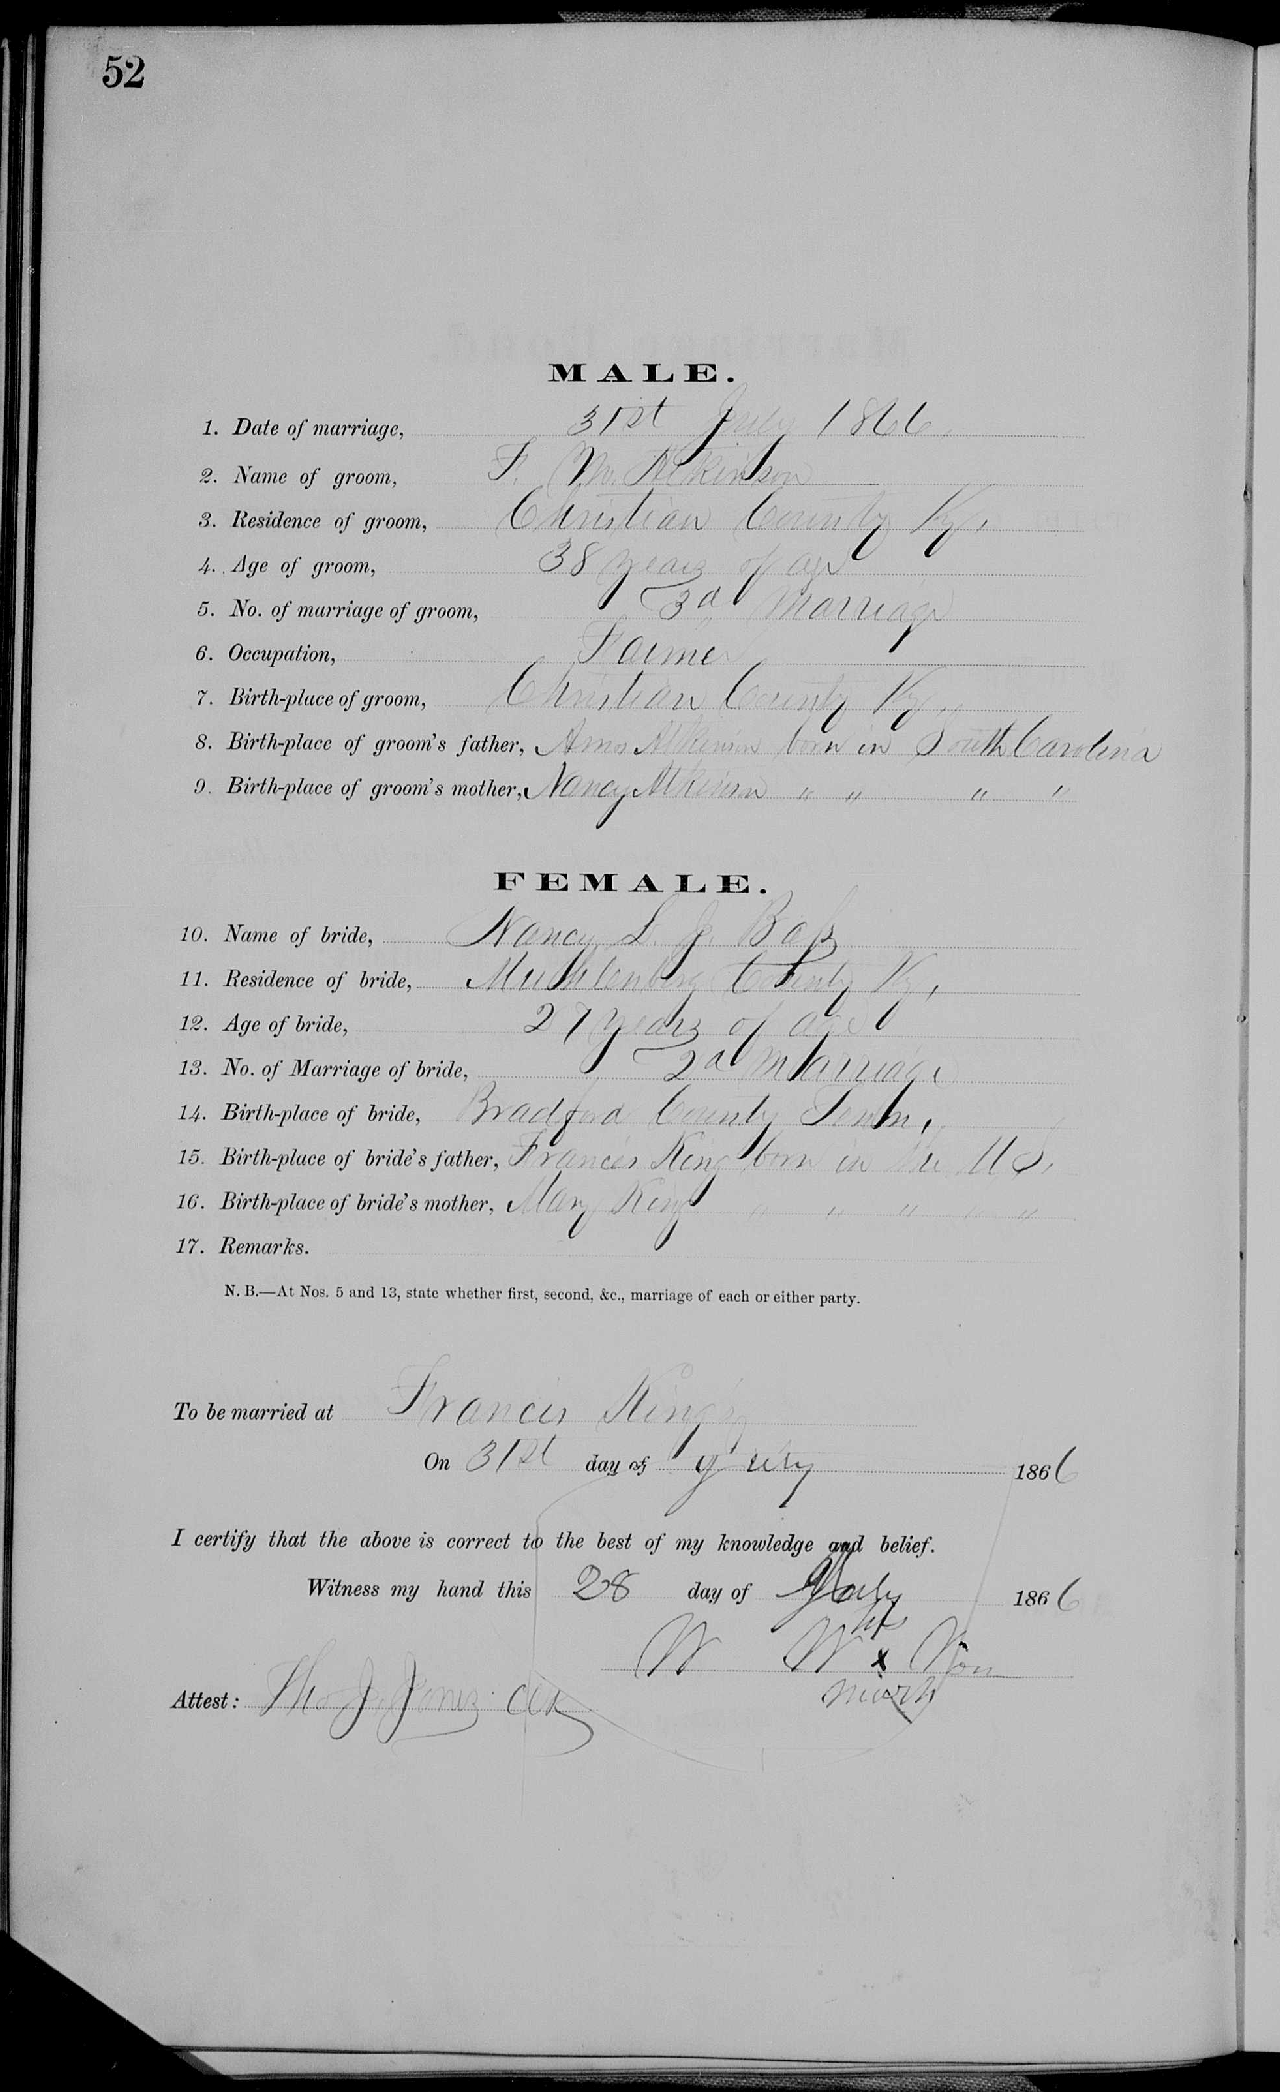 52
MALE.
1. Date of marriage, 31st July 1866.
2. Name of groom, F. M. Atkinson
3. Residence of groom, Christian County Ky.
4. Age of groom, 38 years of age
5. No. of marriage of groom, 3d Marriage
6. Occupation, Farmer
7. Birth-place of groom, Christian County Ky.
8. Birth-place of groom's father, Amos Atkinson born in South Carolina
9. Birth-place of groom's mother, Nancy Atkinson " " " "
FEMALE.
10. Name of bride, Nancy L. J. Bass
11. Residence of bride, Muhlenberg County Ky,
12. Age of bride, 27 years of age
13. No. of Marriage of bride, 2d Marriage
14. Birth-place of bride, Bradford County Tenn,
15. Birth-place of bride's father, Francis King born in the U S.
16. Birth-place of bride's mother, Mary King " " " " "
17. Remarks.
N. B.—At Nos. 5 and 13, state whether first, second, &c., marriage of each or either party.
To be married at Francis King's
On 31st day of July 1866
I certify that the above is correct to the best of my knowledge and belief.
Witness my hand this 28 day of July 1866
his
W W x
mark
Attest: Tho. J. Jones Clk